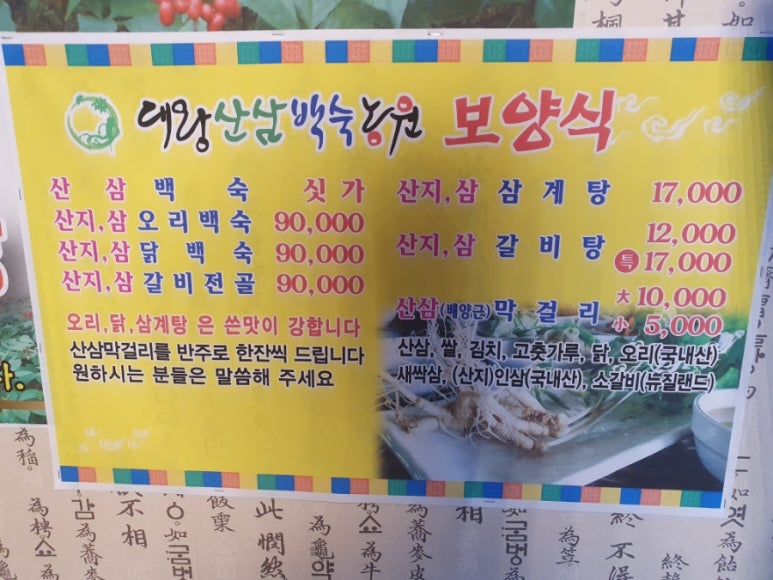 대왕산삼백숙농원 보양식
산 삼 백 숙 싯 가
산지,삼 오 리 백 숙 90,000
산지,삼 닭 백 숙 90,000
산지,삼 갈 비 전 골 90,000
오리,닭,삼계탕 은 쓴맛이 강합니다
산삼막걸리를 반주로 한잔씩 드립니다
원하시는 분들은 말씀해 주세요
산지,삼 삼 계 탕 17,000
산지,삼 갈 비 탕 12,000
특 17,000
산삼(배양근) 막 걸 리 大 10,000
小 5,000
산삼, 쌀, 김치, 고춧가루, 닭, 오리(국내산)
새싹삼, (산지)인삼(국내산), 소갈비(뉴질랜드)
다.
為稲。
為
감 為蕎麥
不相
飯稟
此憫然
為龜약
為牛
為蕎麥皮
相
如굼벙為
終不得
如엿為飴